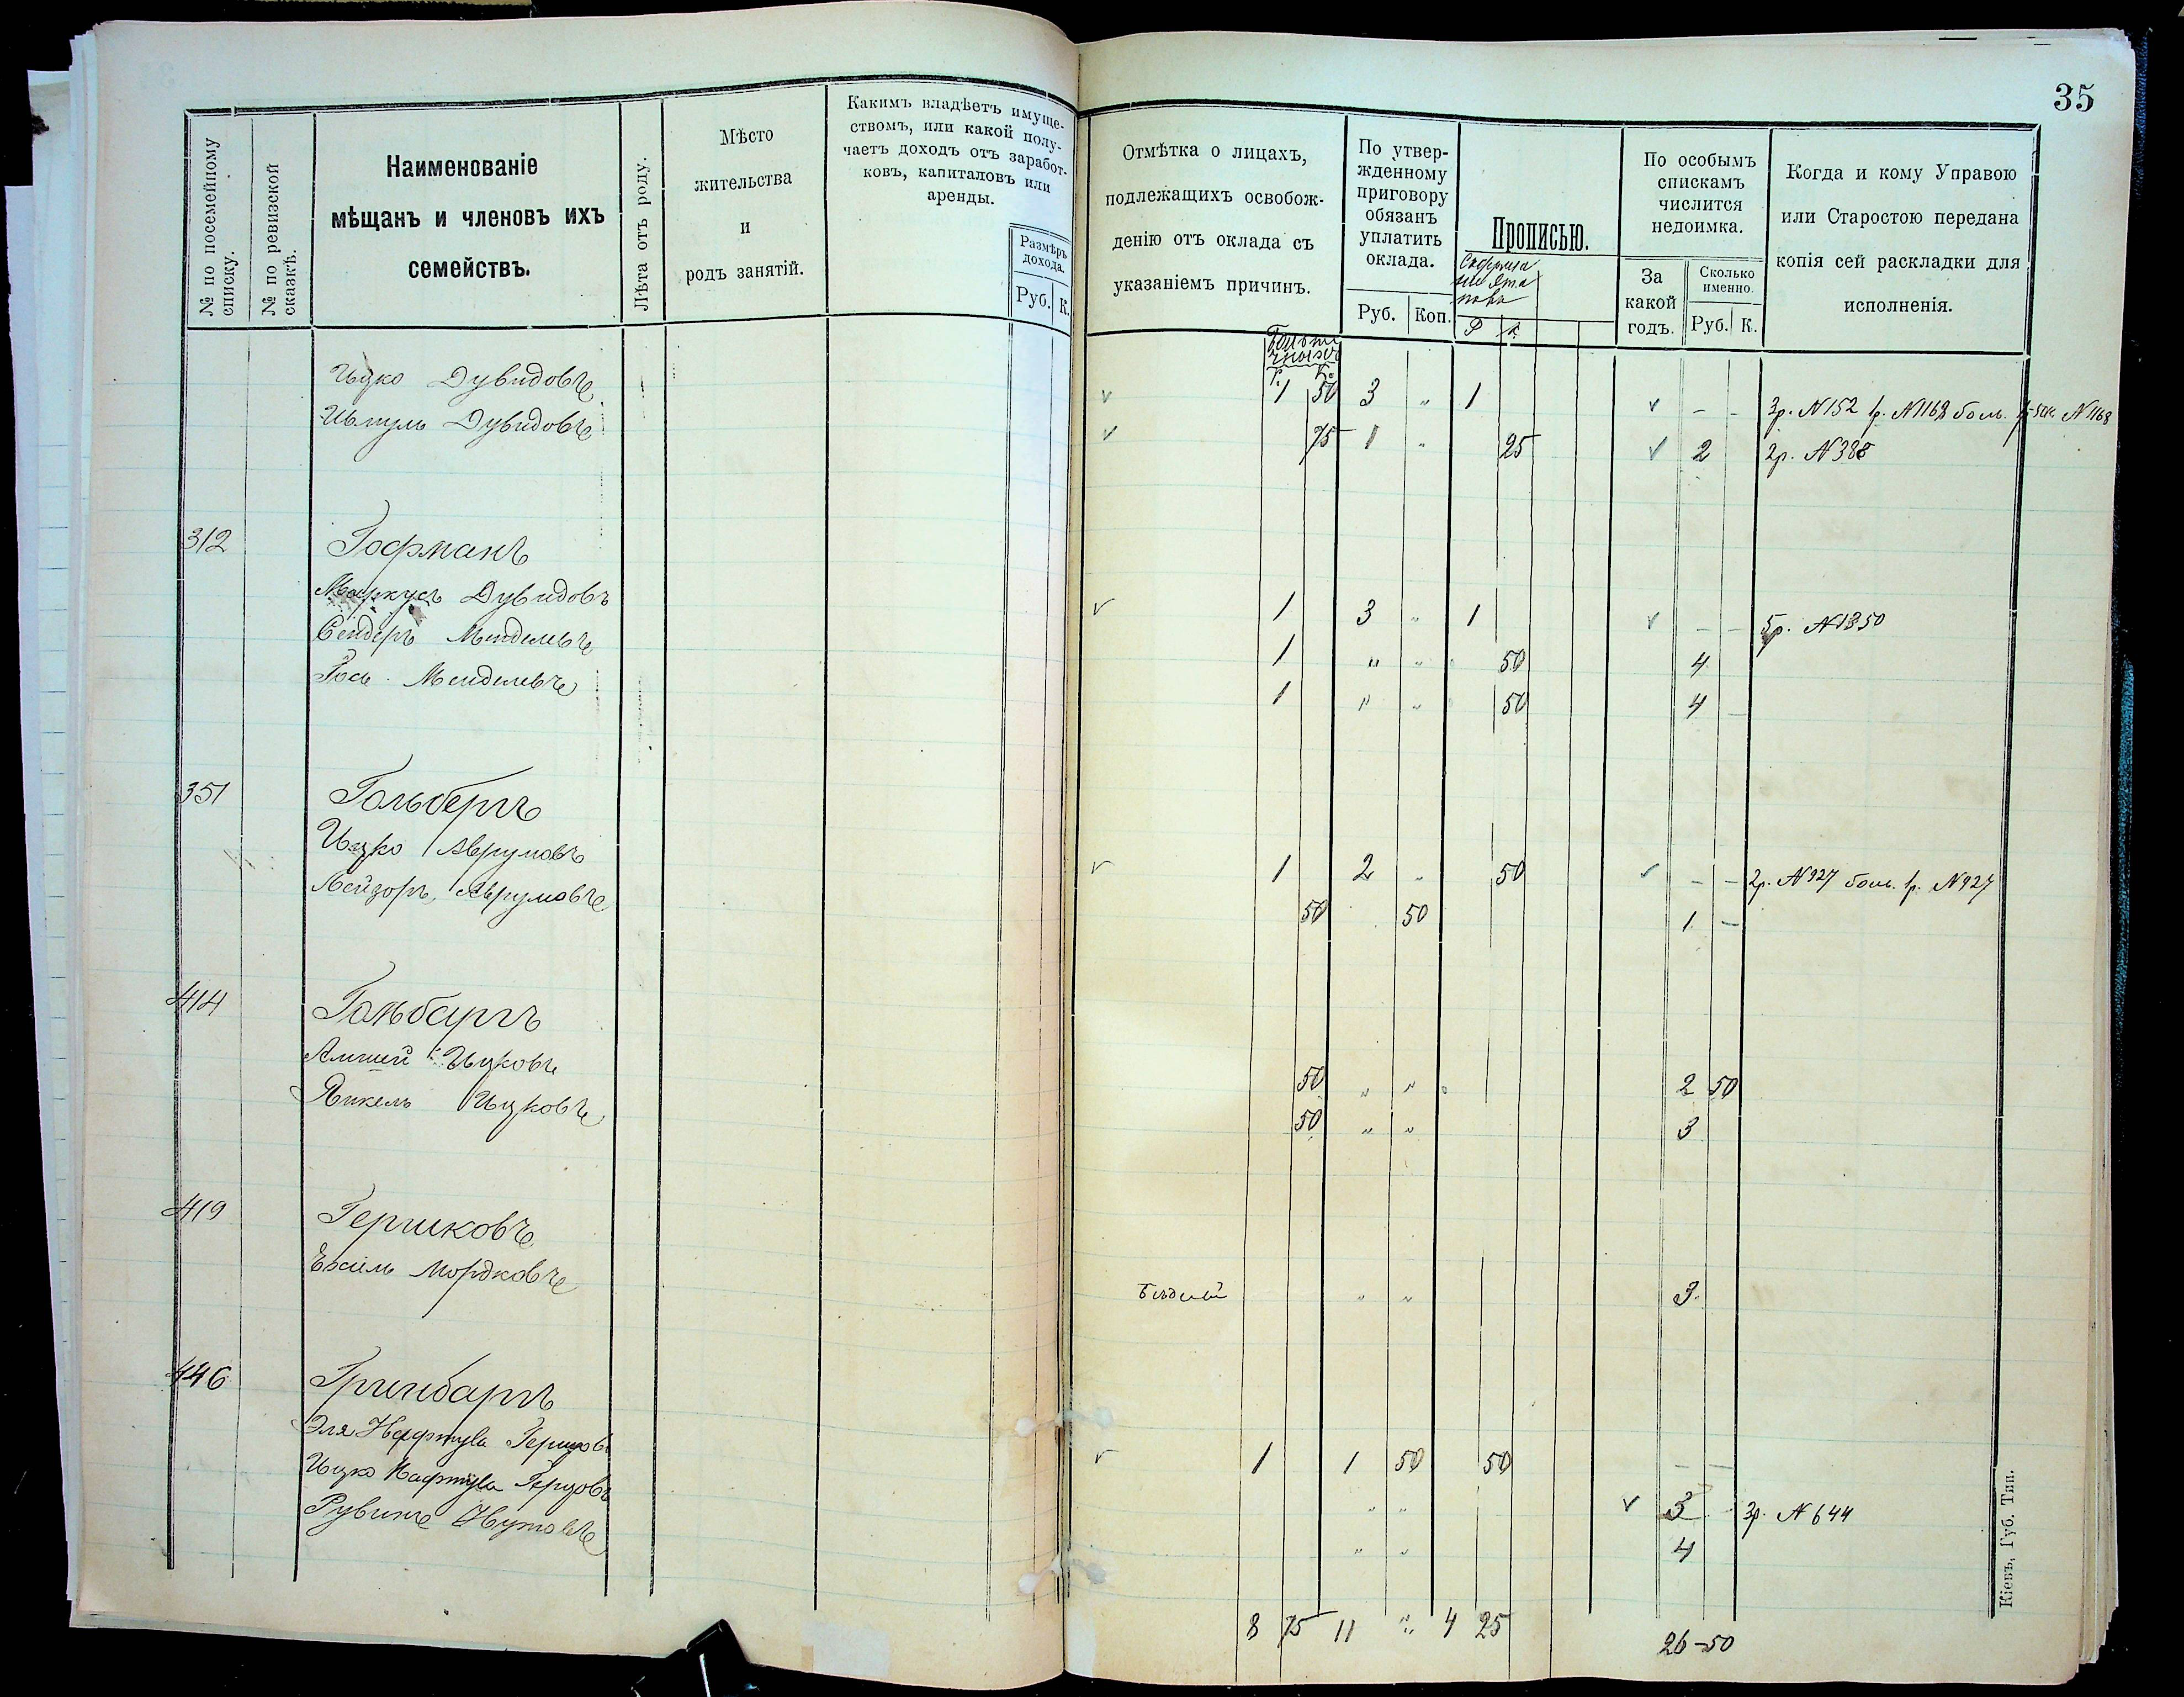 35
№ по посемейному списку.
№ по ревизской сказкѣ.
Наименованіе
мѣщанъ и членовъ ихъ
семействъ.
Лѣта отъ роду.
Мѣсто
жительства
и
родъ занятій.
Какимъ владѣетъ имуще-
ствомъ, или какой полу-
чаетъ доходъ отъ заработ-
ковъ, капиталовъ или
аренды.
Размѣръ
дохода.
Руб. К.
Отмѣтка о лицахъ,
подлежащихъ освобож-
денію отъ оклада съ
указаніемъ причинъ.
По утвер-
жденному
приговору
обязанъ
уплатить
оклада.
Руб. Коп.
Прописью.
Р К
По особымъ
спискамъ
числится
недоимка.
За
какой
годъ.
Сколько
именно.
Руб. К.
Когда и кому Управою
или Старостою передана
копія сей раскладки для
исполненія.
Р. К.
Ицко Дувидовъ 1 50 3 " 1 – – 3р. №152 1р. №1168 бол. №1168
Дувидовъ 75 1 " 25 2 2р. №388
312 Гофманъ
Маркусъ Дувидовъ 1 3 " 1 – – 5р. №1350
Сендеръ Менделевъ 1 " " 50 4
Менделевъ 1 " " 50 4 –
351 Гольбергъ
Ицко Аврумовъ 1 2 " 50 – – 2р. №927 бол. 1р. №927
Лейзоръ Аврумовъ 50 50 1 –
414 Гольбаргъ
Ицковъ 50 " " 2 50
Янкель Ицковъ 50 " " 3
419 Гершковъ
Мордковъ Бѣдный " " 3
446 Гринбаргъ
Эля Нафтула 1 1 50 50 – –
Ицко Нафтула Герцовъ " " 3 – 3р. №644
Рувинъ " " 4
8 75 11 " 4 25 26–50
Кіевъ, Губ. Тип.